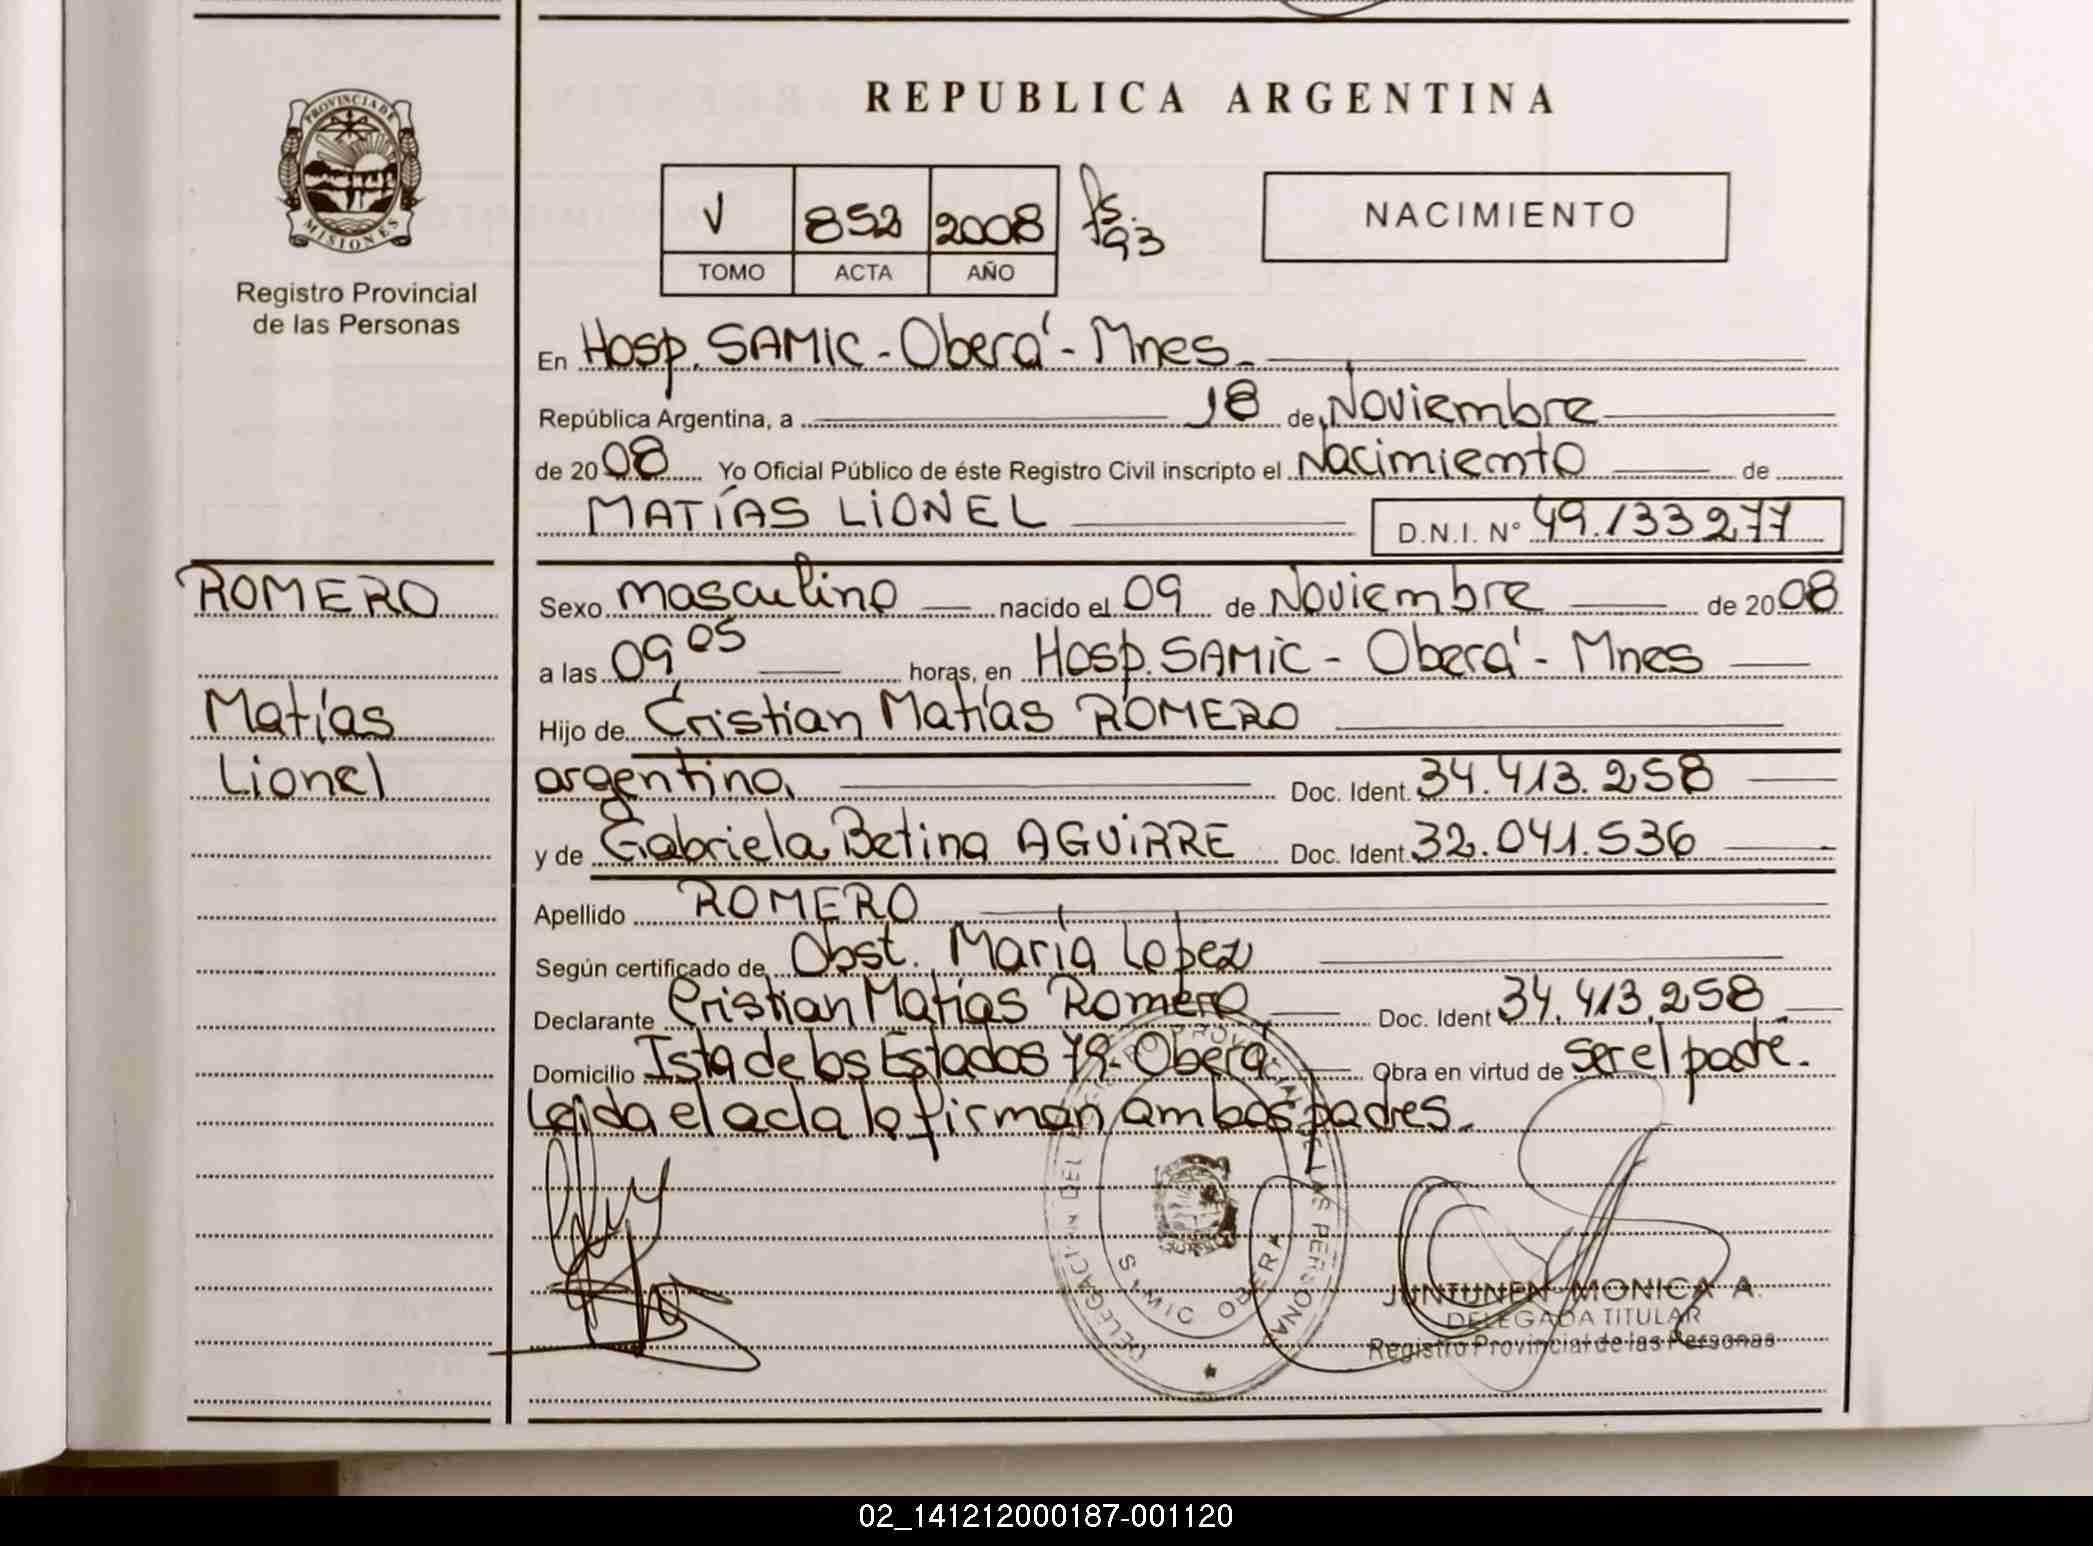 REPUBLICA ARGENTINA
PROVINCIA DE
MISIONES
Registro Provincial
de las Personas
V 852 2008 fs. 93
TOMO ACTA AÑO
NACIMIENTO
En Hosp. SAMIC - Oberá - Mnes.
República Argentina, a 18 de Noviembre
de 2008 Yo Oficial Público de éste Registro Civil inscripto el Nacimiento de
MATÍAS LIONEL D.N.I. N° 49.133277
ROMERO
Matías
Lionel
Sexo masculino nacido el 09 de Noviembre de 2008
a las 09 05 horas, en Hosp. SAMIC - Oberá - Mnes
Hijo de Cristian Matías ROMERO
argentino, Doc. Ident. 34.413.258
y de Gabriela Betina AGUIRRE Doc. Ident 32.041.536
Apellido ROMERO
Según certificado de Obst. María Lopez
Declarante Cristian Matías Romero Doc. Ident 34.413.258
Domicilio Isla de los Estados 79 - Oberá Obra en virtud de ser el padre.
Leida el acta la firman ambos padres.
DELEGACION DEL REGISTRO PROVINCIAL DE LAS PERSONAS
SAMIC OBERA
JUNTUNEN MONICA A.
DELEGADA TITULAR
Registro Provincial de las Personas
02_141212000187-001120